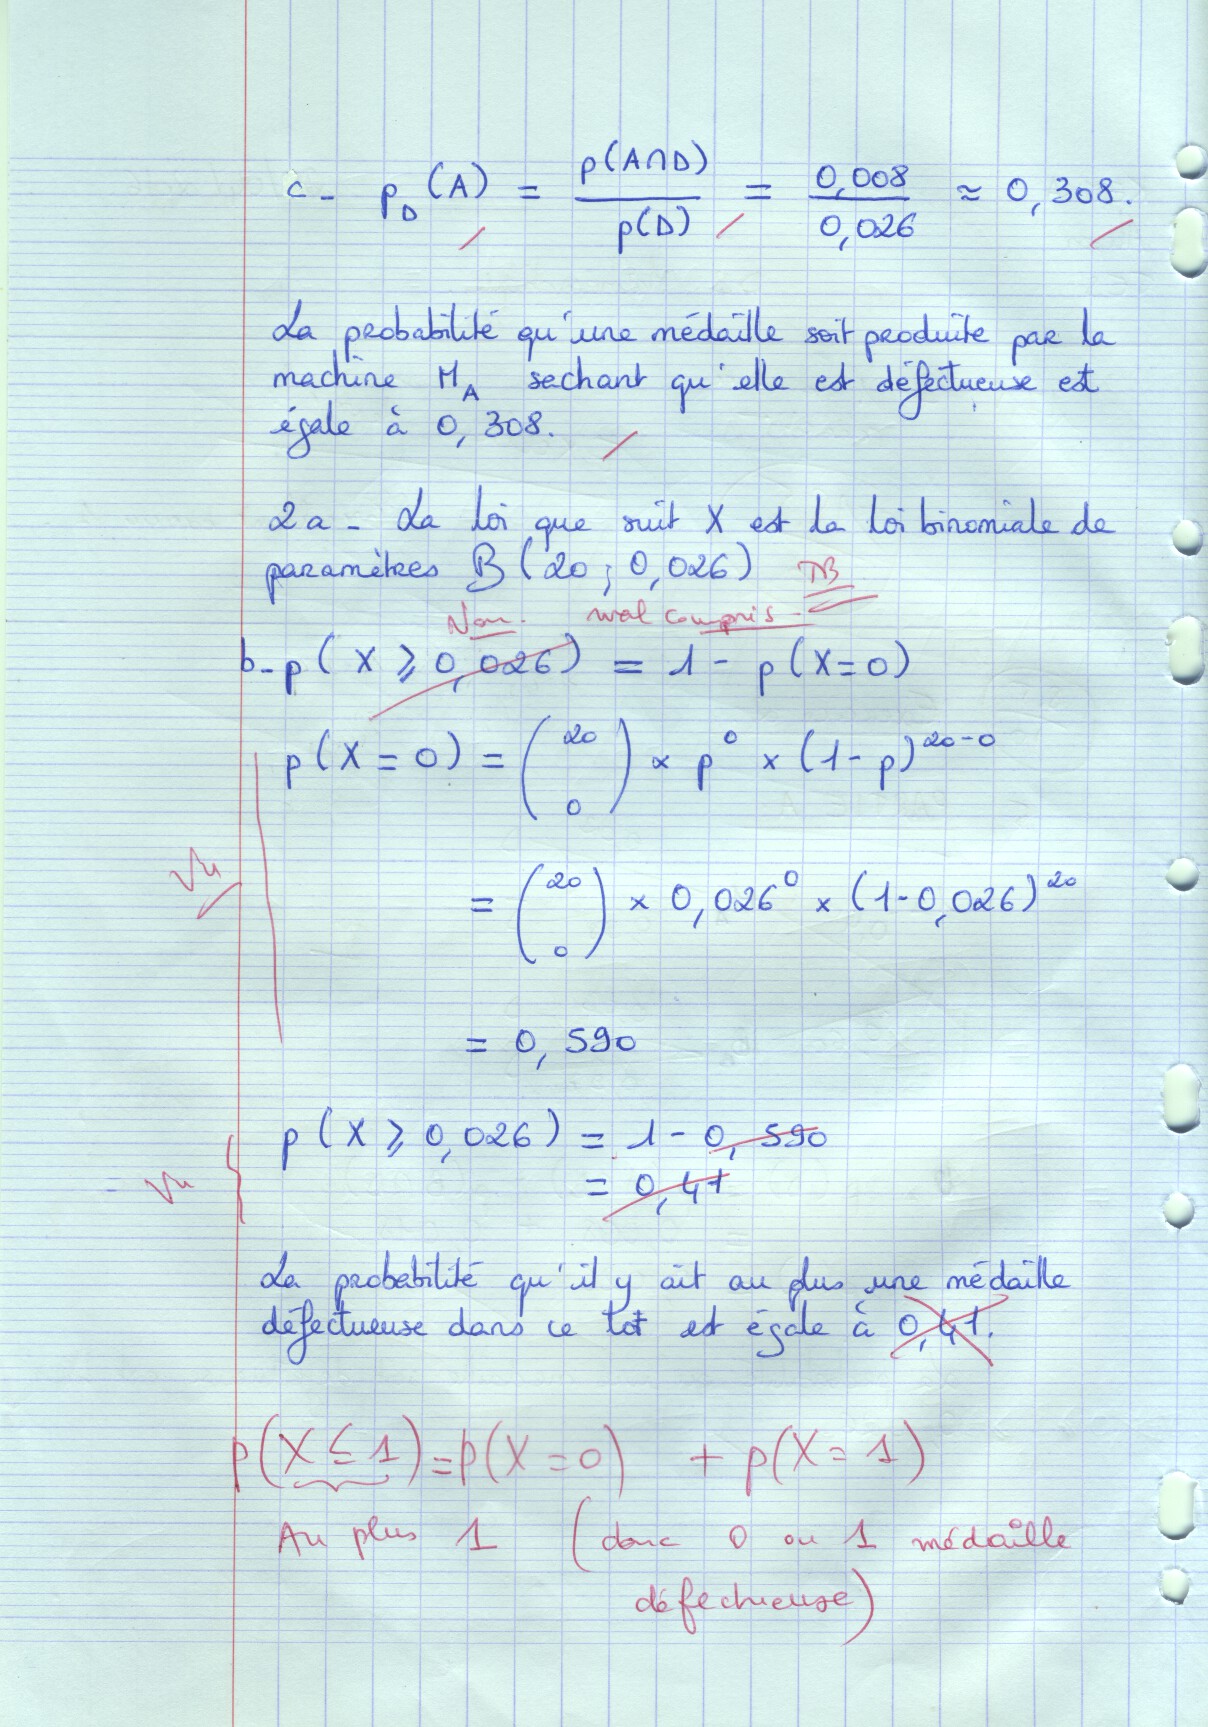 c- p_D(A) = p(A∩D)/p(D) = 0,008/0,026 ≈ 0,308.
La probabilité qu'une médaille soit produite par la
machine M_A sechant qu'elle est défectueuse est
égale à 0,308.
2a- La loi que suit X est la loi binomiale de
paramètres B(20 ; 0,026) TB
Non. mal compris-
b- p(X ⩾ 0,026) = 1 - p(X=0)
p(X=0) = (20 0) × p^0 × (1-p)^20-0
Vu
= (20 0) × 0,026^0 × (1-0,026)^20
= 0,590
p(X ⩾ 0,026) = 1 - 0,590
Vu
= 0,41
La probabilité qu'il y ait au plus une médaille
défectueuse dans ce lot est égale à 0,41.
p(X ≤ 1) = p(X=0) + p(X=1)
Au plus 1 (donc 0 ou 1 médaille
défectueuse)